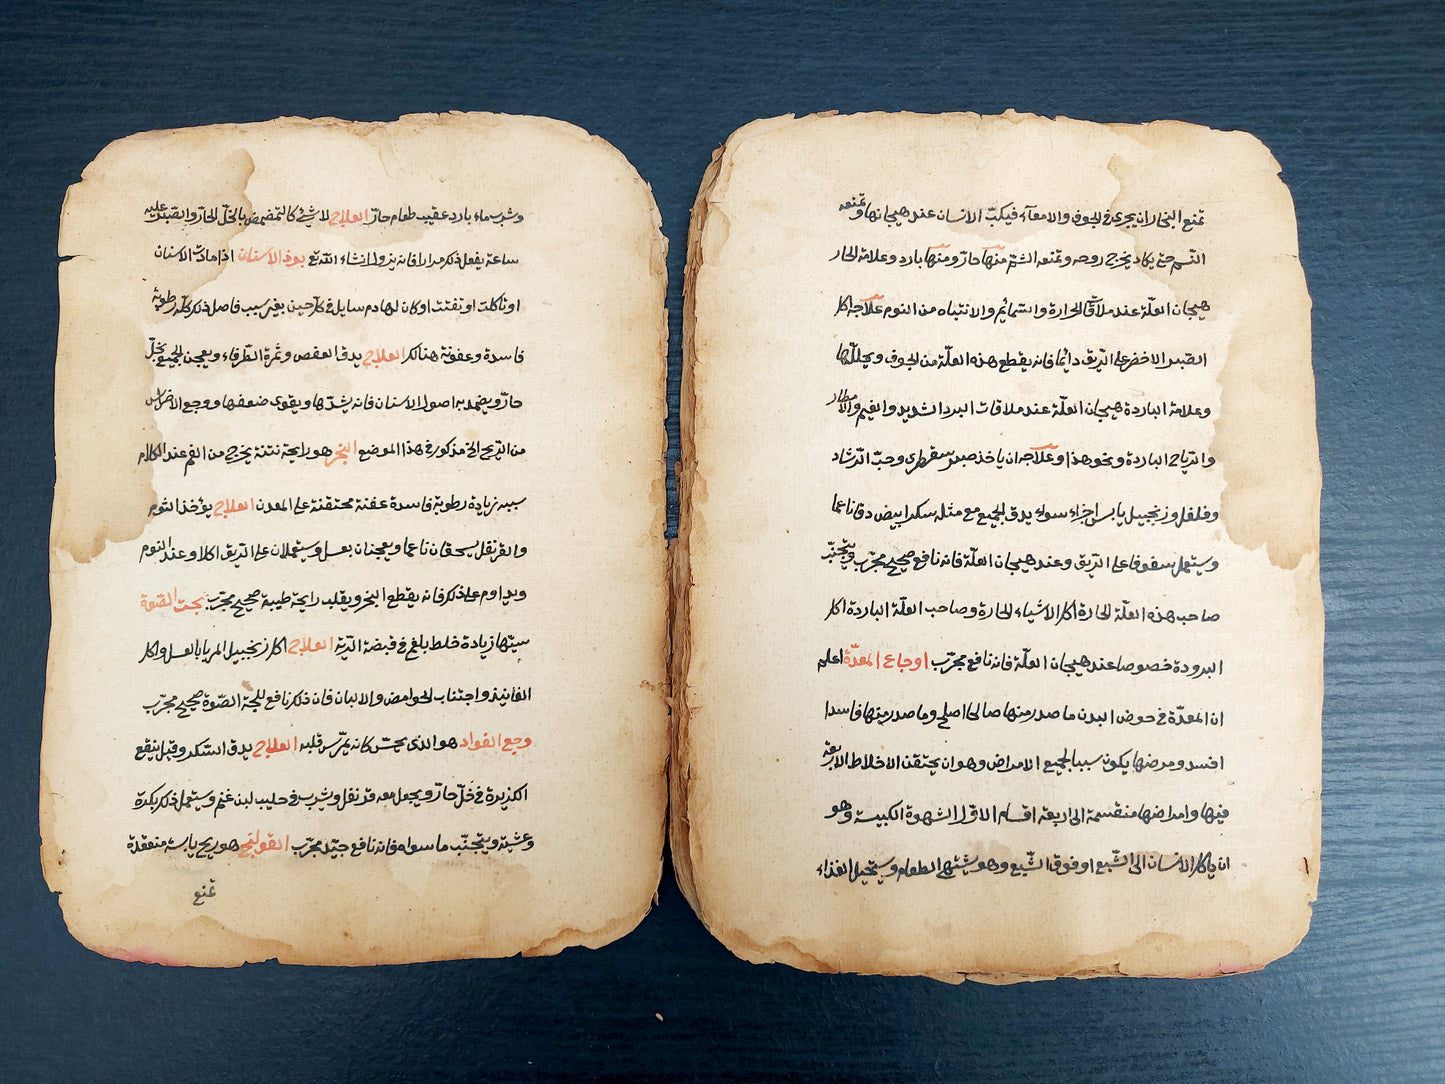 تمنع البخاران يجرى فى الجوف والامعآء فيكبّ الانسان عند هيجانها وتمنعه
النّسم حتى يكاد يخرج روحه وتمنعه الشم منها حارّ ومنها بارد وعلامة الحار
هيجان العلّة عند ملاقاة الحرارة والسّمائم والانتباه من النوم علاجه اكل
الصّبر الاخضر على الرّيق دايما فانه يقطع هذه العلّة من الجوف ويحلّلها
وعلامة الباردة هيجان العلّة عند ملاقات البرد الشديد والغيم والامطار
والرّياح الباردة ونحو هذا وعلاجه ان ياخذ صبر سقطرى وحبّ الرّشاد
وفلفل وزنجبيل يابس اجزاء سواء يدق الجميع مع مثله سكر ابيض دقا ناعما
ويستعمل سفوفا على الرّيق وعند هيجان العلّة فانه نافع صحيح مجرّب ويتجنّب
صاحب هذه العلّة الحارة اكل الاشياء الحارة وصاحب العلّة الباردة اكل
البرودة خصوصا عند هيجان العلّة فانه نافع مجرّب اوجاع المعدّة اعلم
ان المعدّة فى حوض البدن ما صدر منها صالحا اصلح وما صدر منها فاسدا
افسد ومرضها يكون سببا لجميع الامراض وهو ان يحتقن الاخلاط الاربعة
فيها وامراضها منقسمة الى اربعة اقسام الاوّل الشهوة الكبيرة وهو
ان ياكل الانسان الى الشّبع او فوق الشّبع وهو يشتهى الطعام ويستحيل الغذاء
وشرب ماء بارد عقيب طعام حارّ العلاج لا شئ كالتمضمض بالخلّ الحارّ والصّبر عليه
ساعة يفعل ذلك مرارا فانه يزول انشاء الله تع بوذ الاسنان اذا مادت الاسنان
او تاكلت او تفتتت او كان لها دم سايل فى كلّ حين بغير سبب فاصل ذلك كلّه رطوبة
فاسدة وعفونة هنالك العلاج يدق العفص وثمرة الطّرفاء ويعجن الجميع بخلّ
حارّ ويضمد به اصول الاسنان فانه يشدّها ويقوى ضعفها ووجع الاضراس
من الرّيح الخ مذكور فى هذا الموضع البخر هو رايحة نتنة يخرج من الفم عند الكلام
سببه زيادة رطوبة فاسدة عفنة محتقنة على المعدن العلاج يؤخذ الثوم
والقرنفل يسحقان ناعما ويعجنان بعسل ويستعملان على الرّيق اكلا وعند النوم
ويداوم على ذلك فانه يقطع البخر ويقلب رايحة طيبة صحيح مجرّب بحت الصّوة
سببها زيادة خلط بلغم فى قبضة الرّية العلاج اكل زنجبيل المربا بالعسل واكل
الفانيذ واجتناب الحوامض والالبان فان ذلك نافع للبحة الصّوة صحيح مجرّب
وجع الفواد هو الذى يحسّ كانه يمّرس قلبه العلاج يدق السّكر وقبل ينقع
الكزبرة فى خلّ حارّ ويجعل معه قرنفل ويشرب فى حليب لبن غنم ويستعمل ذلك بكرة
وعشيّة ويتجنّب ما سواه فانه نافع جيّد مجرّب القولنج هو ريح يابسة منعقدة
تمنع